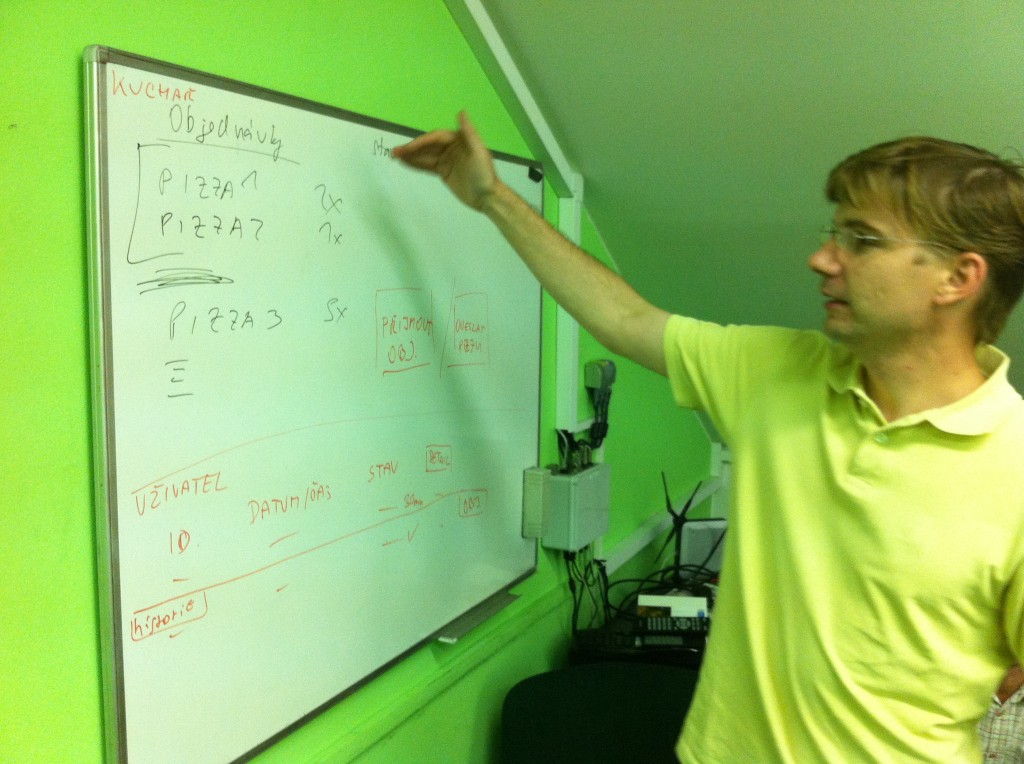 KUCHAŘ
Objednávky
PIZZA 1 2x
PIZZA 2 1x
PIZZA 3 5x
PŘIJMOUT
OBJ.
UŽIVATEL DATUM/ČAS STAV DETAIL
ID. OBJ
historie